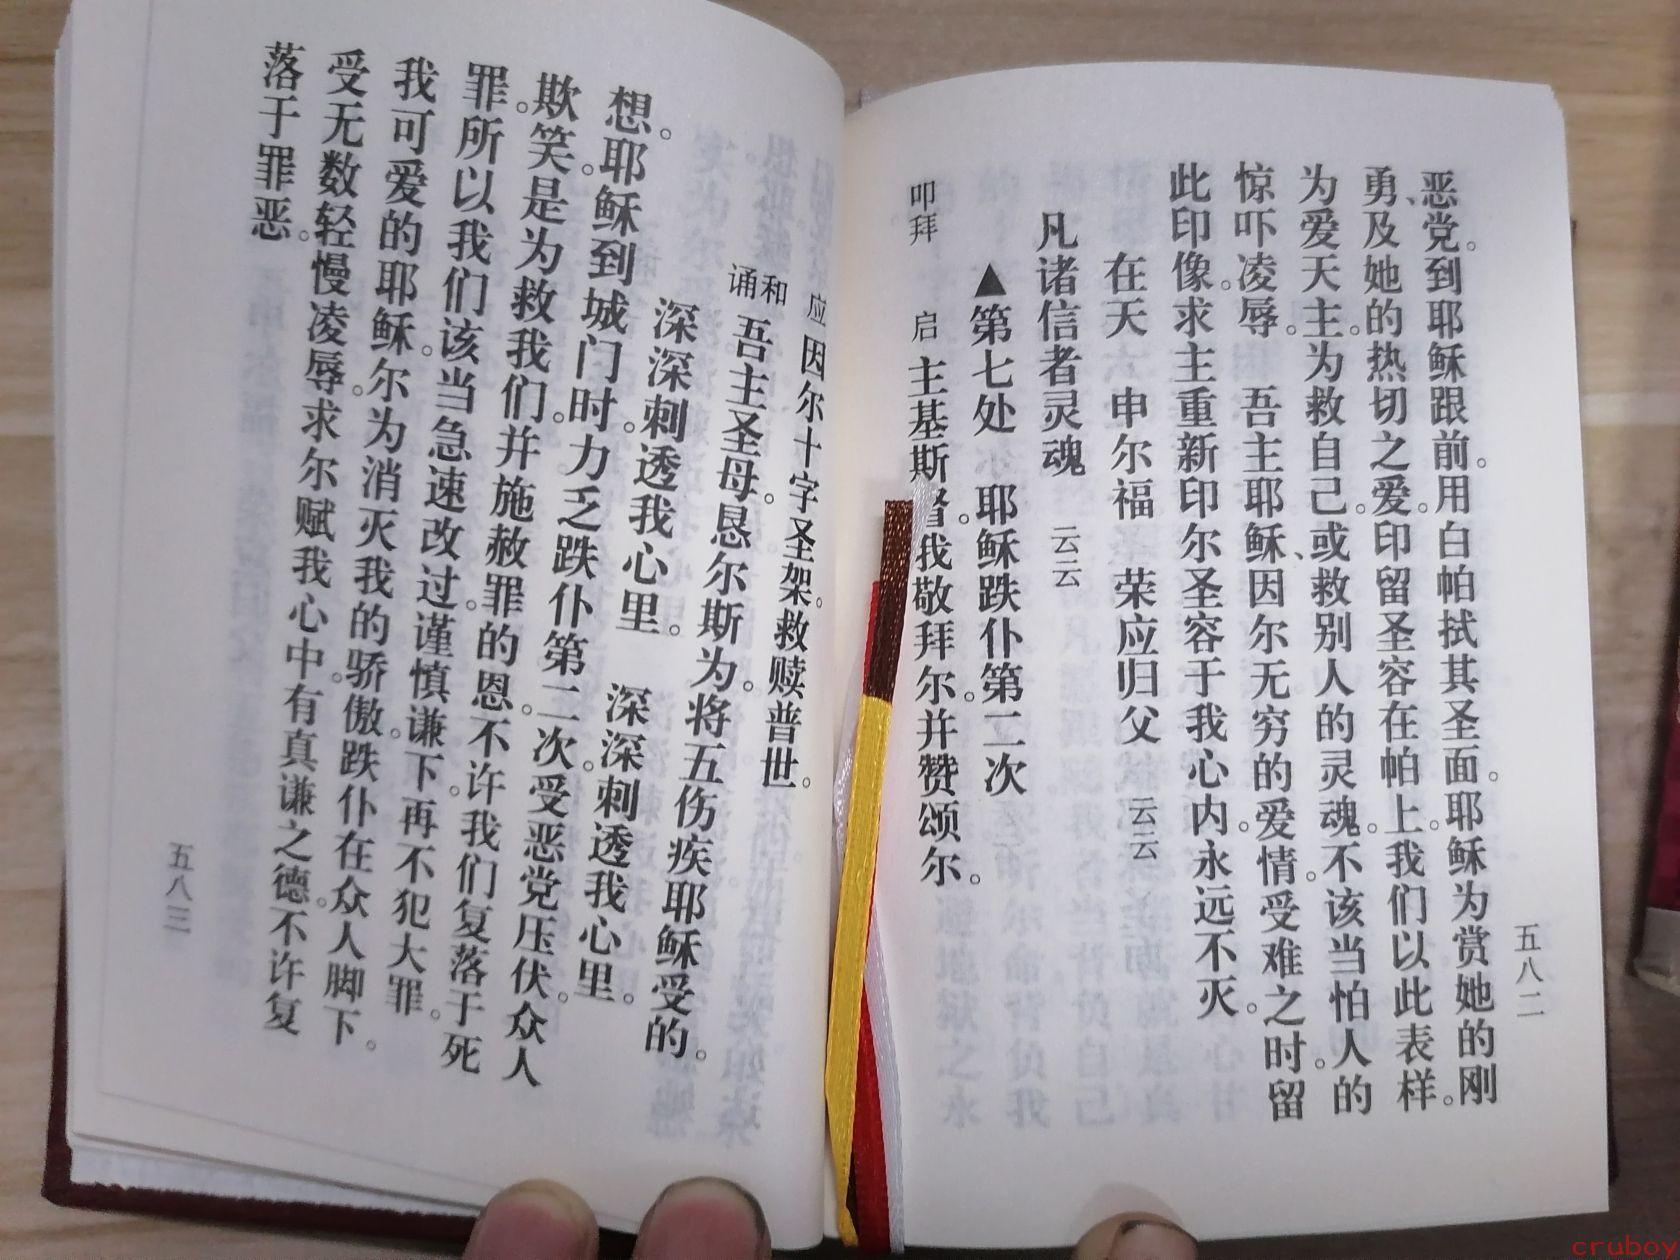 五八二
恶党。到耶稣跟前。用白帕拭其圣面。耶稣为赏她的刚
勇、及她的热切之爱。印留圣容在帕上。我们以此表样。
为爱天主。为救自己。或救别人的灵魂。不该当怕人的
惊吓凌辱。 吾主耶稣、因尔无穷的爱情。受难之时。留
此印像。求主重新印尔圣容于我心内。永远不灭。
在天 申尔福 荣应归父 云云
凡诸信者灵魂 云云
▲第七处 耶稣跌仆第二次
叩拜 启 主基斯督。我敬拜尔。并赞颂尔。
应 因尔十字圣架。救赎普世。
诵和 吾主圣母。恳尔斯为。将五伤疾耶稣受的。
深深刺透我心里。 深深刺透我心里。
想。耶稣到城门时。力乏跌仆第二次。受恶党压伏。众人
欺笑。是为救我们。并施赦罪的恩。不许我们复落于死
罪。所以我们该当急速改过。谨慎谦下。再不犯大罪。
我可爱的耶稣。尔为消灭我的骄傲。跌仆在众人脚下。
受无数轻慢凌辱。求尔赋我心中。有真谦之德。不许复
落于罪恶。
五八三
cruboy